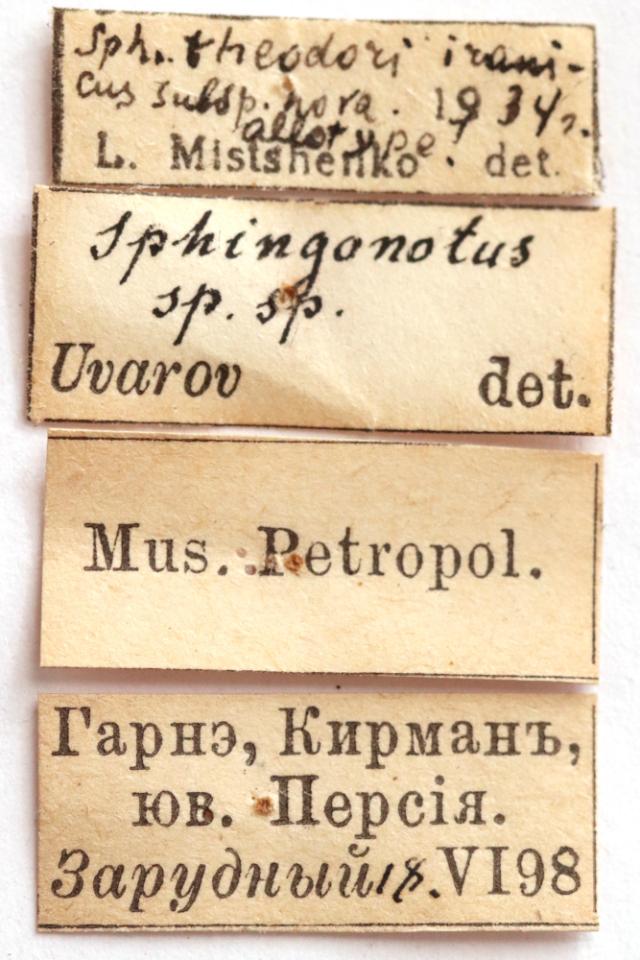 Sph. theodori irani-
cus subsp. nova. 1934 г.
allotype!
L. Mistshenko det.
Sphingonotus
sp. sp.
Uvarov det.
Mus. Petropol.
Гарнэ, Кирманъ,
юв. Персія.
Зарудный 18.VI98